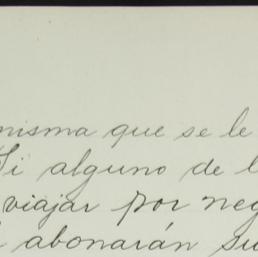 misma que se le
Si alguno de l
viajar por neg
abonarán su